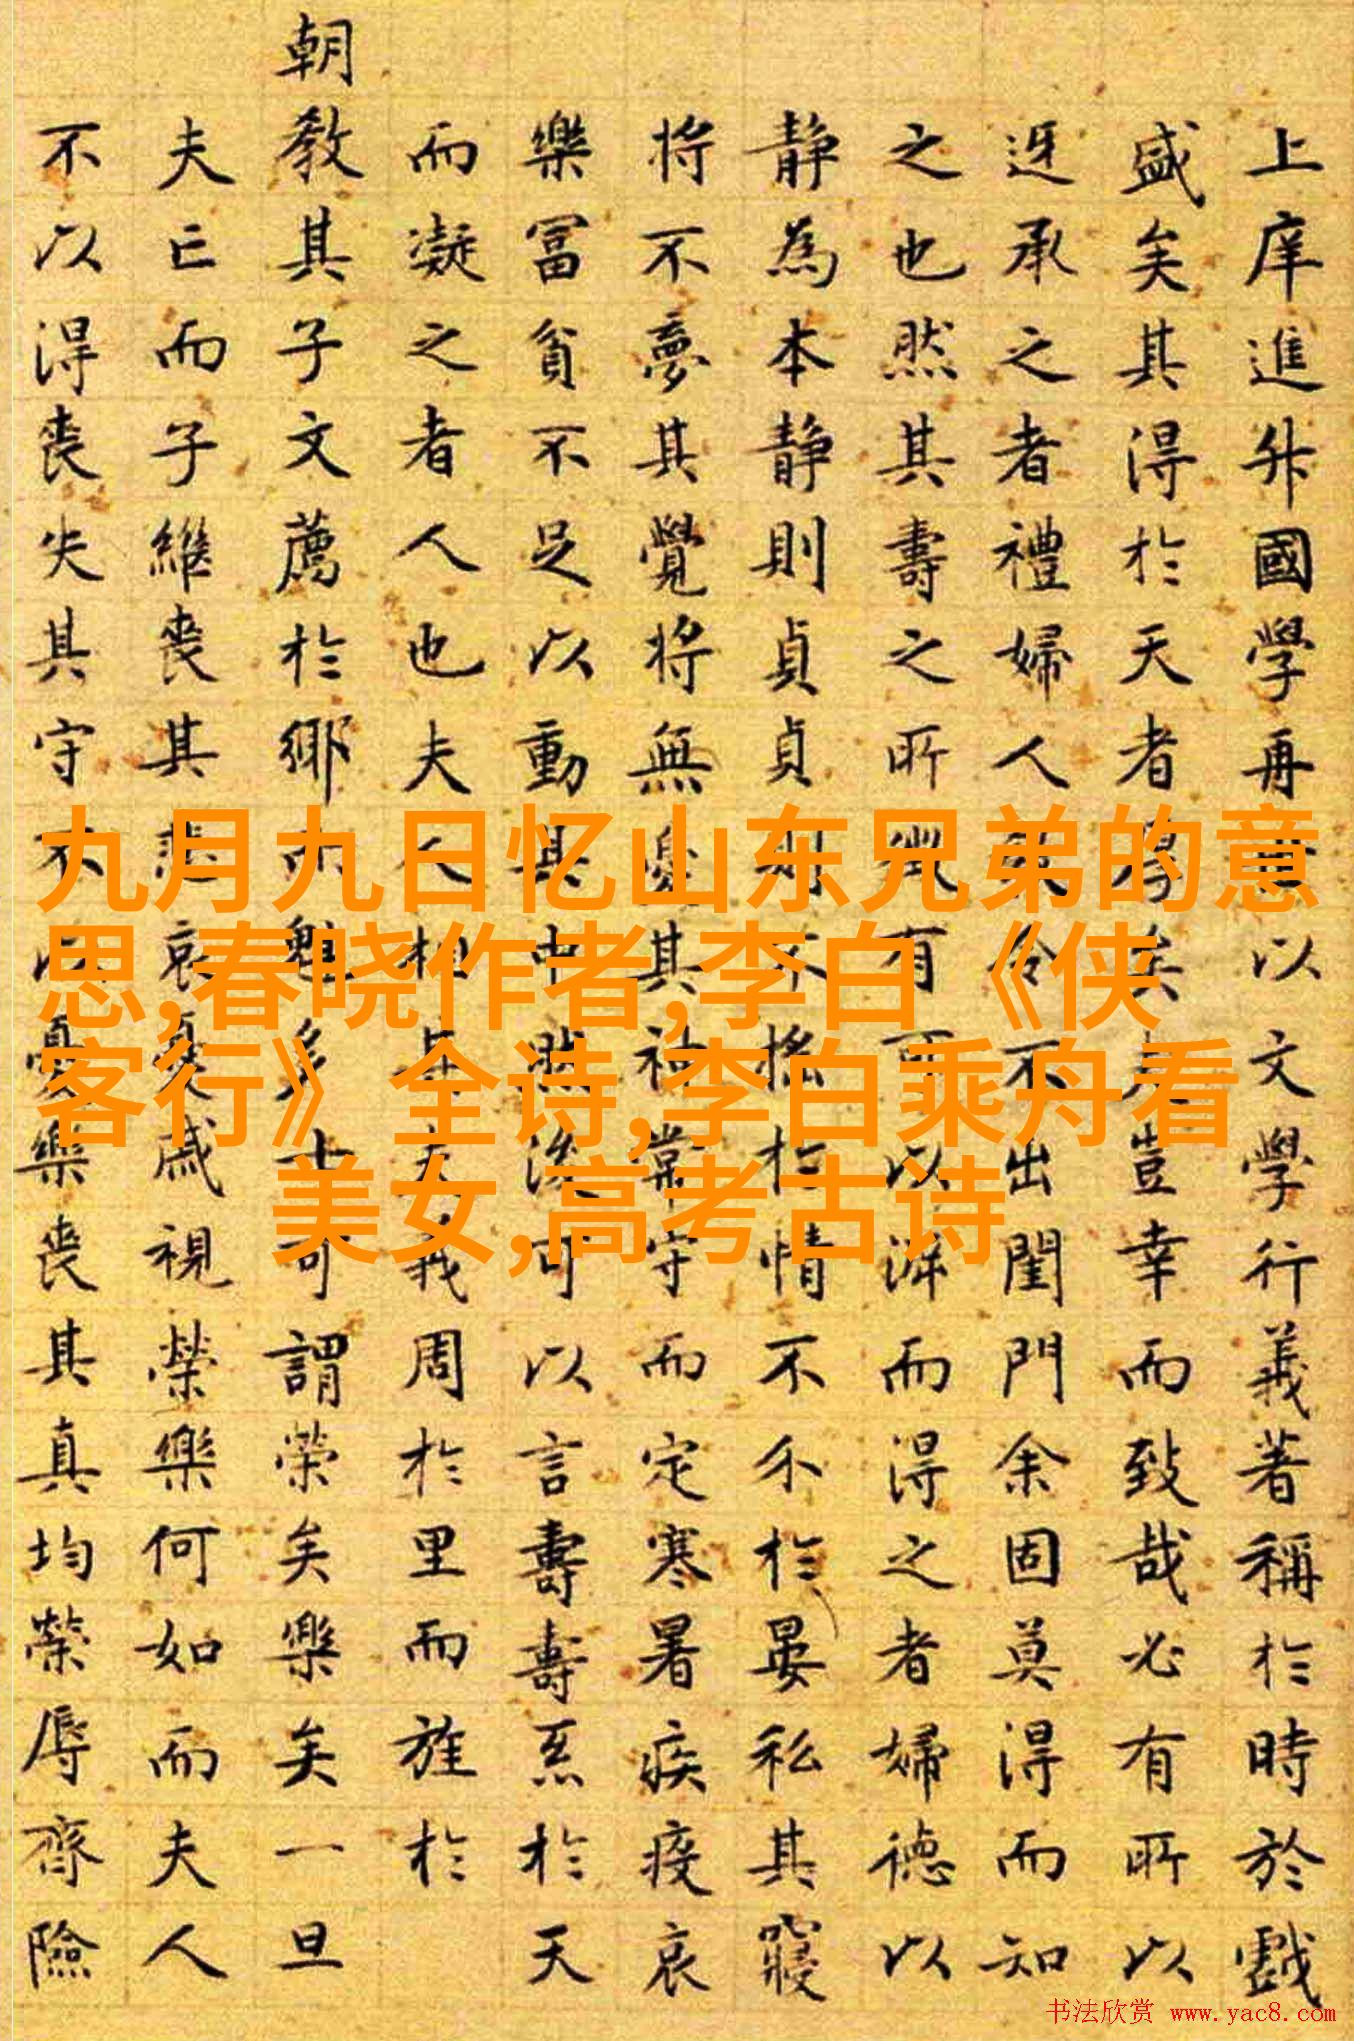 上庠進升國學再以文學行義著稱於時於戲
盛矣其得於天者厚矣夫豈幸而致哉必有所以
迓承之者禮婦人令不出閨門余固莫得而知
之也然其壽之所徵有可以而得之者婦德以
静為本静則貞貞則不搖於情不介於晏私其寢
将不夢其覺将無憂其神常守而定寒暑疾疫哀
樂冨貧不足以動其中然後可以言壽壽系於天
而凝之者人也夫人相其夫義周於里而旌於
朝教其子文薦於鄉而魁多士可謂榮矣樂矣一旦
夫亡而子繼喪其悲哀憂戚視榮樂何如而夫人
不以得喪失其守不以憂樂喪其真均榮辱齊險
九月九日忆山东兄弟的意
思,春晓作者,李白《侠
客行》全诗,李白乘舟看
美女,高考古诗
书法欣赏 www.yac8.com